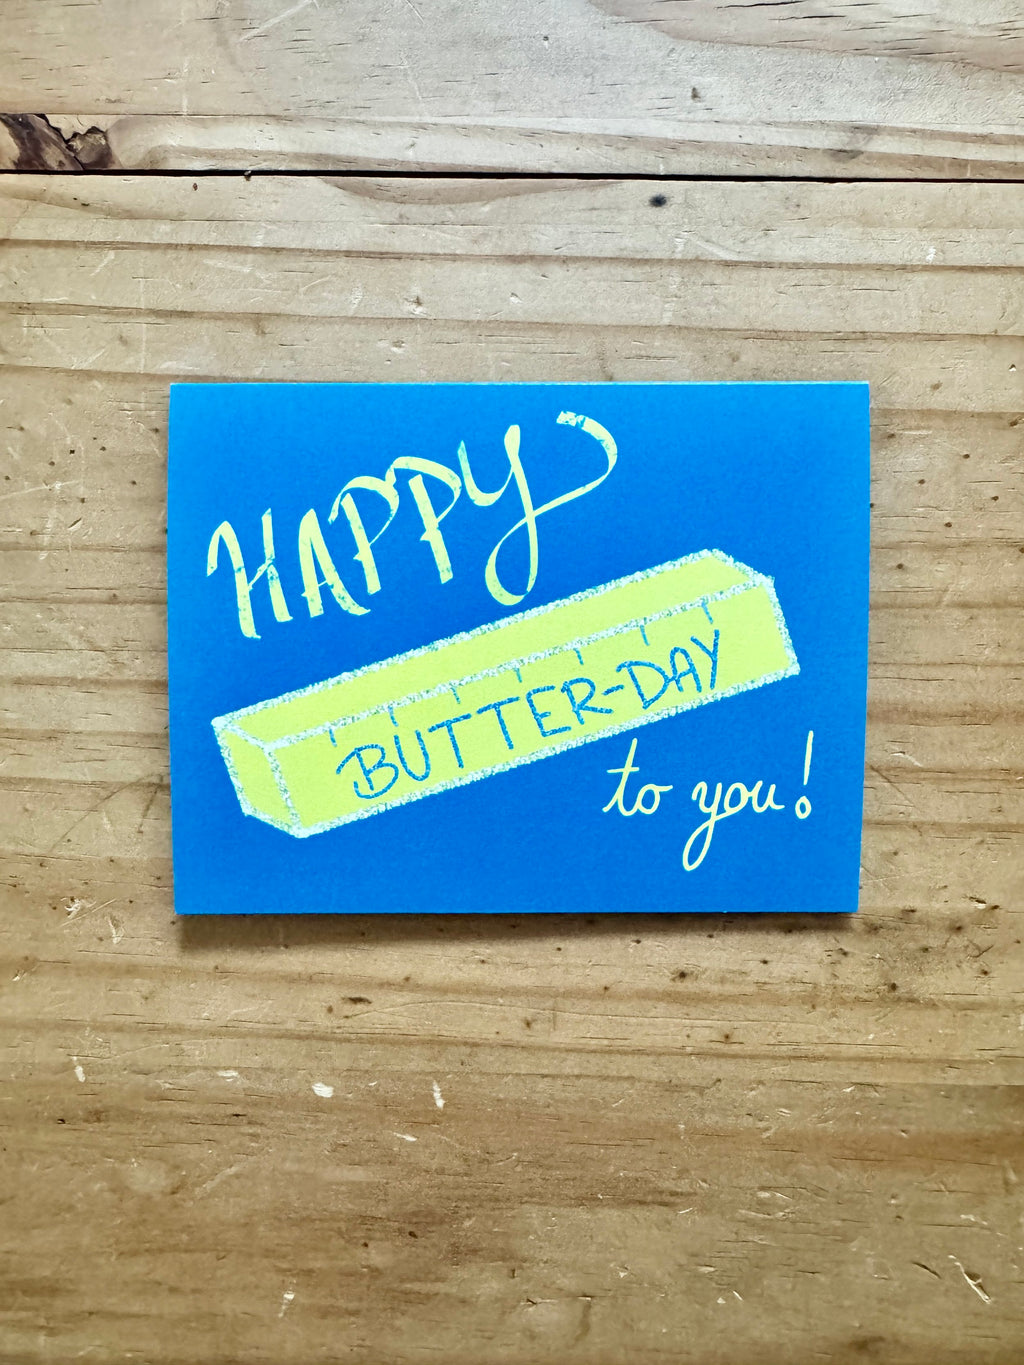 HAPPY
BUTTER-DAY
to you!